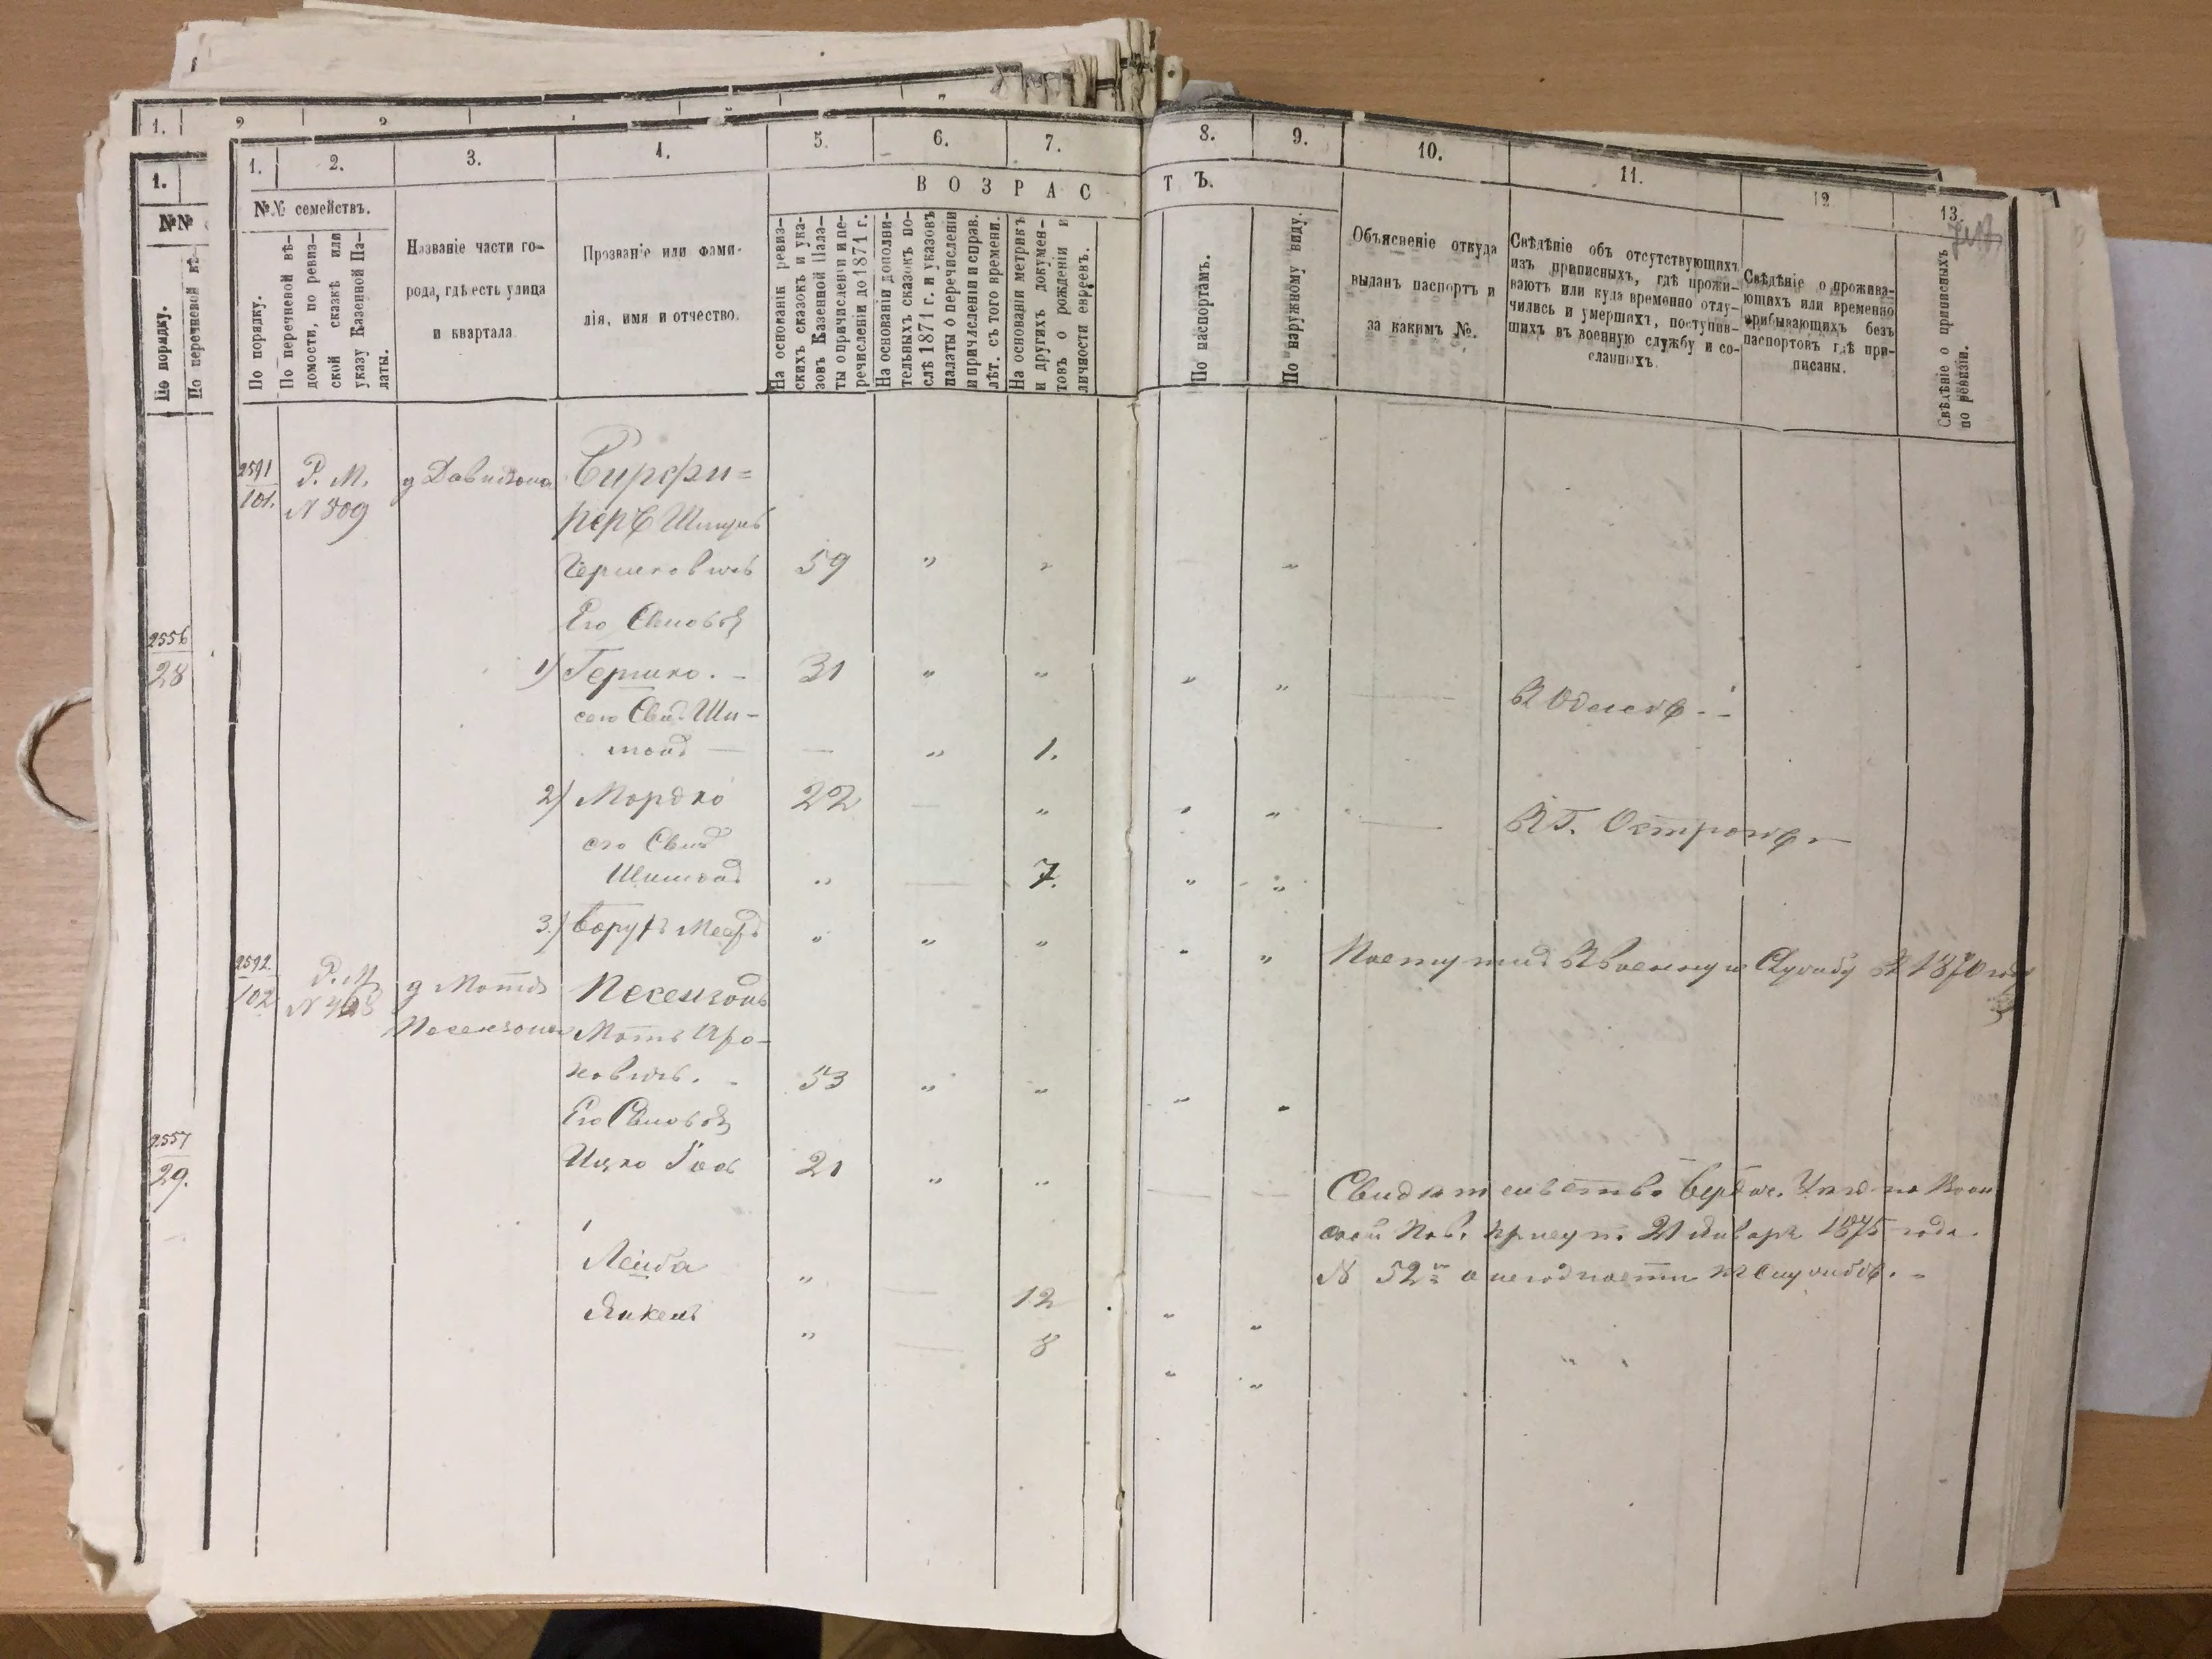 1.
2
3
7
1.
№№
По порядку.
По перечневой вѣ-
2556
28
2557
29.
1.
2.
3.
4.
5.
6.
7.
8.
9.
10.
11.
12
13.
№№ семействъ.
По порядку.
По перечневой вѣ-
домости, по ревиз-
ской сказкѣ или
указу Казенной Па-
латы.
Названіе части го-
рода, гдѣ есть улица
и квартала
Прозваніе или фами-
лія, имя и отчество.
ВОЗРАС
ТЪ.
На основаніи ревиз-
скихъ сказокъ и ука-
зовъ Казенной Пала-
ты о причисленіи и пе-
речисленіи до 1871 г.
На основаніи дополни-
тельныхъ сказокъ по-
слѣ 1871 г. и указовъ
палаты о перечисленіи
и причисленіи и справ.
лѣт. съ того времени.
На основаніи метрикъ
и другихъ докумен-
товъ о рожденіи и
личности евреевъ.
По паспортамъ.
По наружному виду.
Объясненіе откуда
выданъ паспортъ и
за какимъ №.
Свѣдѣніе объ отсутствующихъ
изъ приписныхъ, гдѣ прожи-
ваютъ или куда временно отлу-
чились и умершихъ, поступив-
шихъ въ военную службу и со-
сланныхъ.
Свѣдѣніе о прожива-
ющихъ или временно
прибывающихъ безъ
паспортовъ гдѣ при-
писаны.
Свѣдѣніе о приписныхъ
по ревизіи.
2591
101.
Р. М.
№ 309
д Давидзона
Шимонъ
Гершковичъ 59 " " "
Его Сыновья
1) Гершко. - 31 " " " " В Одессѣ. -
его Сынъ Ши-
монъ — — " 1.
2) Мордко 22 — " " " В Г. Острогѣ
его Сынъ
Шимонъ " — 7. " "
3) Борухъ Меер " " " " " Поступилъ В Военную Службу В 1870 году
2592
102
Р. М
д Мотя Песензонъ
Песензона Мотъ Аро-
новичъ. - 53 " " " "
Его Сыновья
Ицко 21 " " — — Свидѣтельство Бердич. Уѣзд по Воин
ской Пов. присут. 21 Января 1875 года.
№ 52 о негодности к Службѣ. -
Лейба " — 12 " "
Янкель " — 8 " "